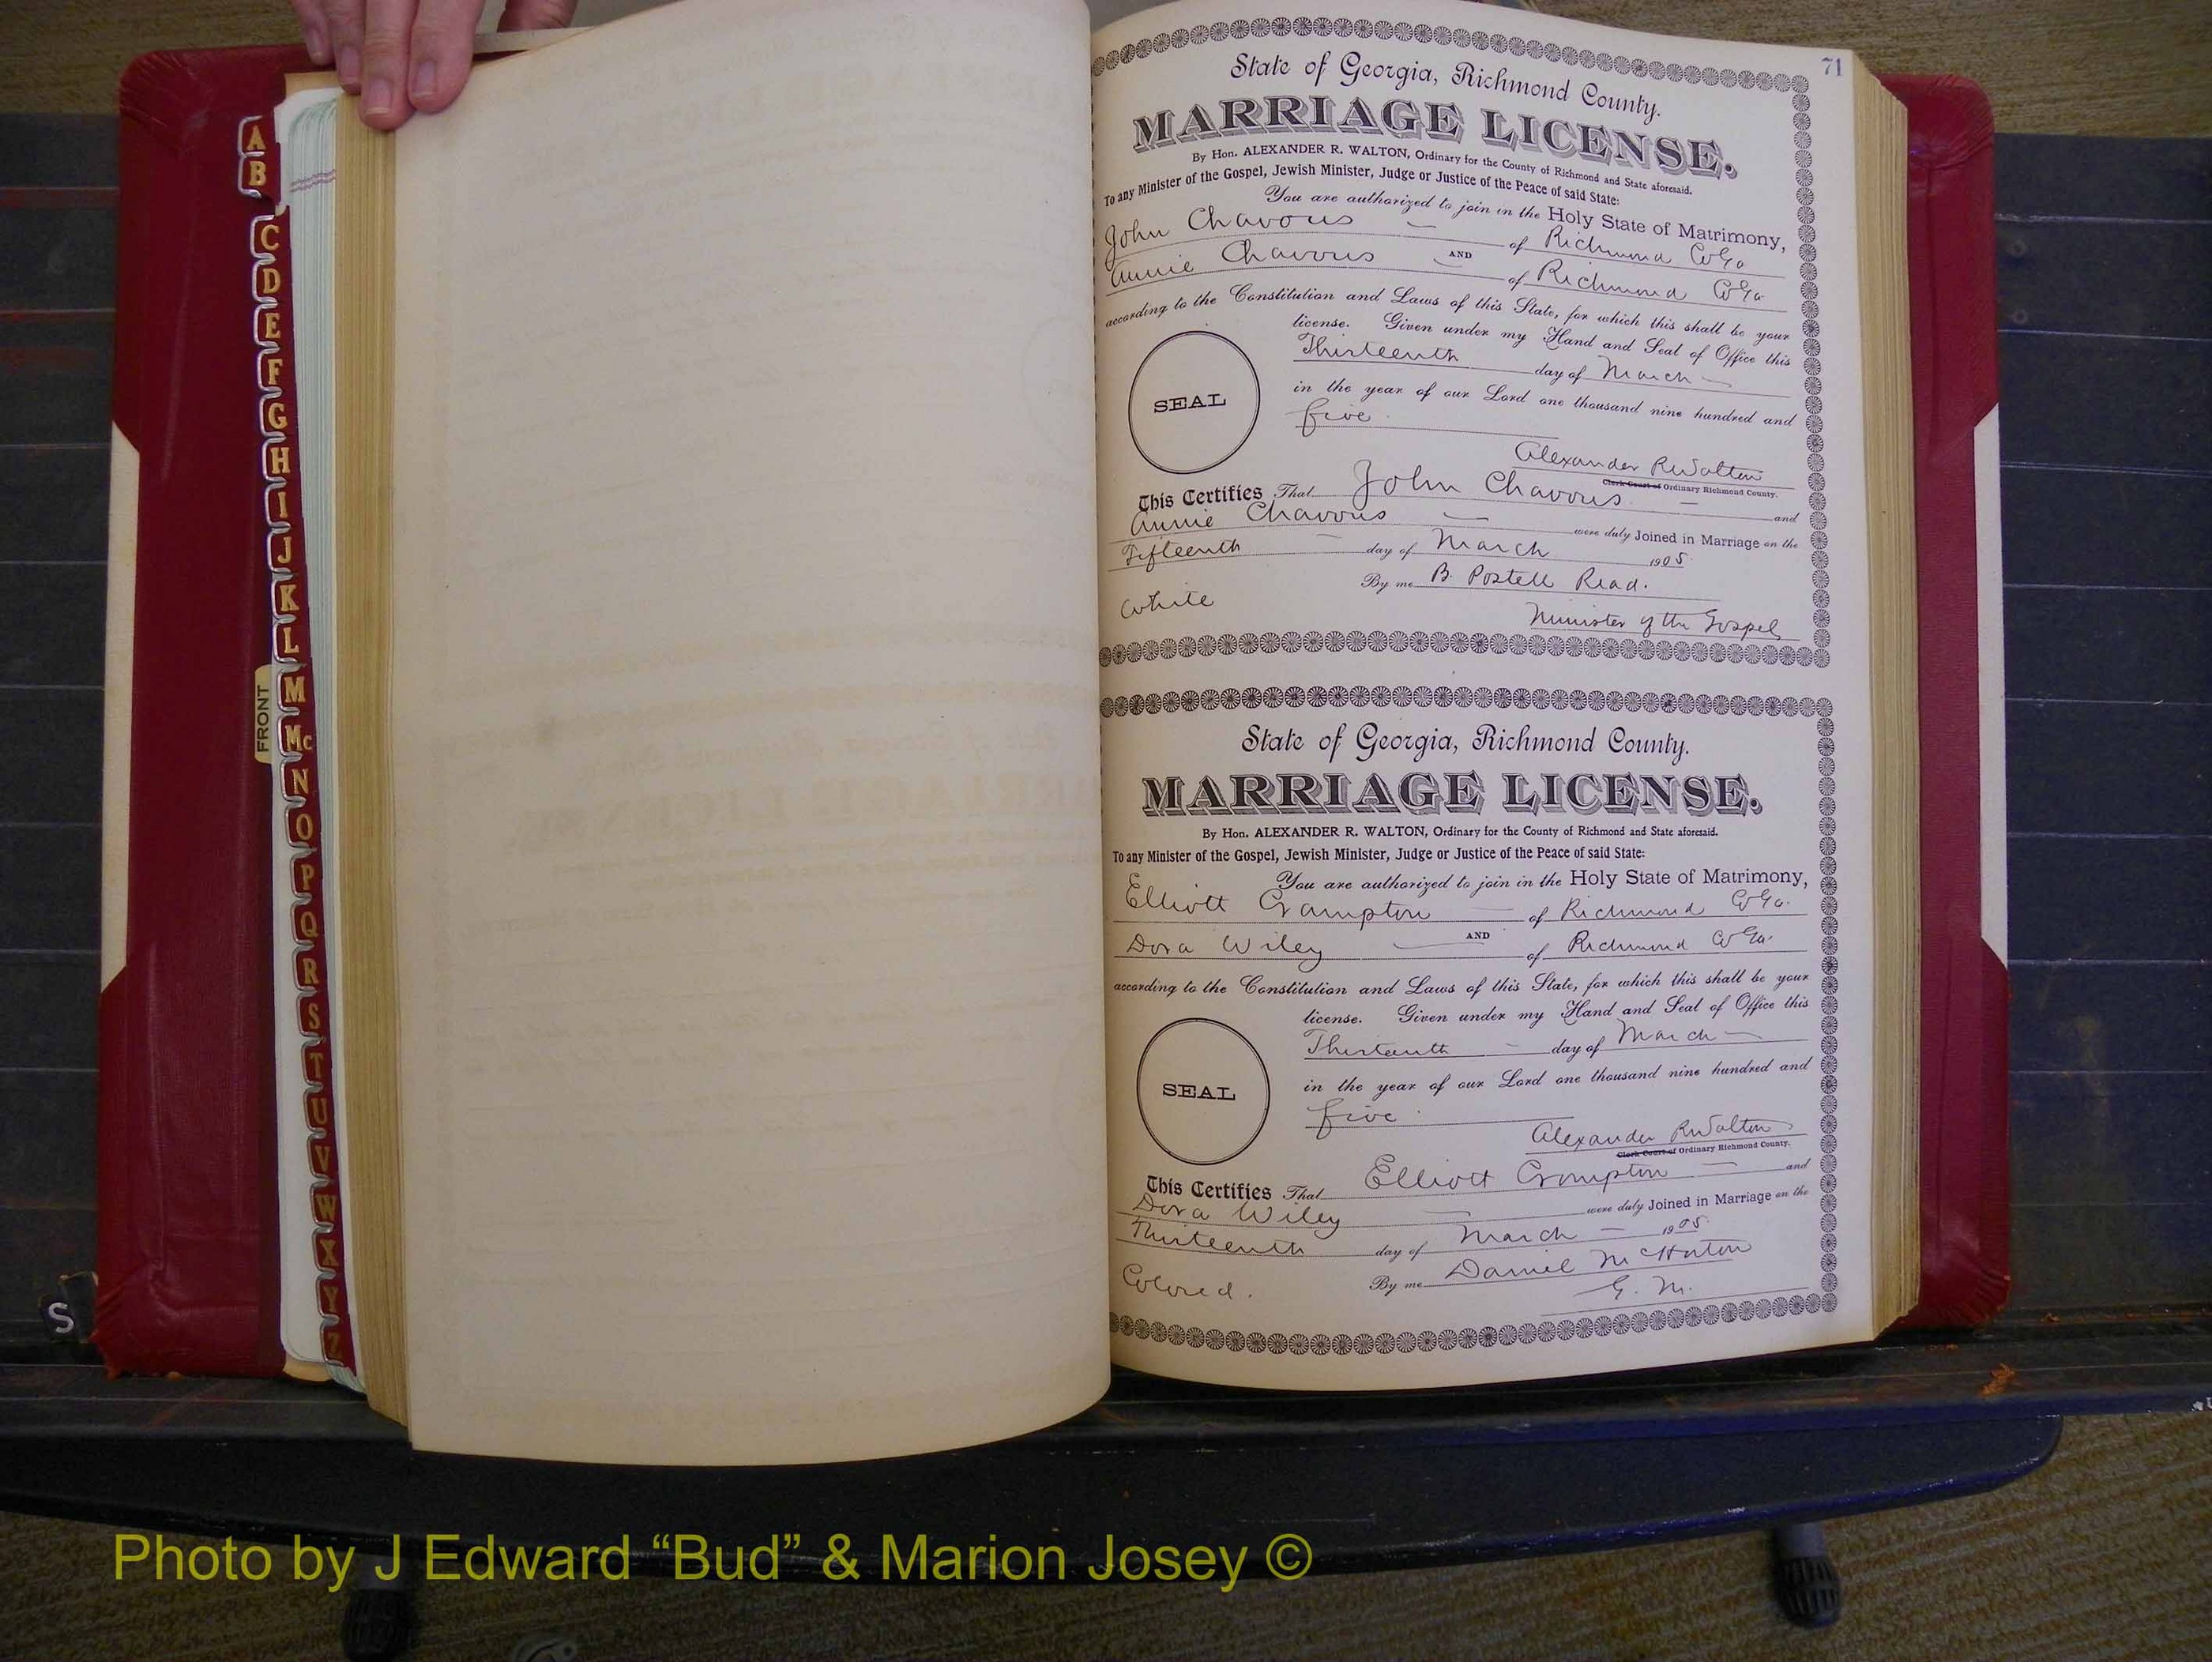 71
State of Georgia, Richmond County.
MARRIAGE LICENSE.
By Hon. ALEXANDER R. WALTON, Ordinary for the County of Richmond and State aforesaid.
To any Minister of the Gospel, Jewish Minister, Judge or Justice of the Peace of said State:
You are authorized to join in the Holy State of Matrimony,
John Chavous of Richmond Co Ga
AND
Annie Chavous of Richmond Co Ga
according to the Constitution and Laws of this State, for which this shall be your
license. Given under my Hand and Seal of Office this
Thirteenth day of March
in the year of our Lord one thousand nine hundred and
five
SEAL
Alexander R Walton
Clerk Court of Ordinary Richmond County.
This Certifies That John Chavous and
Annie Chavous were duly Joined in Marriage on the
Fifteenth day of March 1905.
By me B. Postell Read.
White
Minister of the Gospel
State of Georgia, Richmond County.
MARRIAGE LICENSE.
By Hon. ALEXANDER R. WALTON, Ordinary for the County of Richmond and State aforesaid.
To any Minister of the Gospel, Jewish Minister, Judge or Justice of the Peace of said State:
You are authorized to join in the Holy State of Matrimony,
Elliott Crampton of Richmond Co Ga.
AND
Dora Wiley of Richmond Co Ga.
according to the Constitution and Laws of this State, for which this shall be your
license. Given under my Hand and Seal of Office this
Thirteenth day of March
in the year of our Lord one thousand nine hundred and
five
SEAL
Alexander R Walton
Clerk Court of Ordinary Richmond County.
This Certifies That Elliott Crompton and
Dora Wiley were duly Joined in Marriage on the
Thirteenth day of March 1905.
By me Daniel McHorton
Colored.
G. M.
A
B
C
D
E
F
G
H
I
J
K
L
M
Mc
N
O
P
Q
R
S
T
U
V
W
X
Y
Z
FRONT
S
Photo by J Edward “Bud” & Marion Josey ©